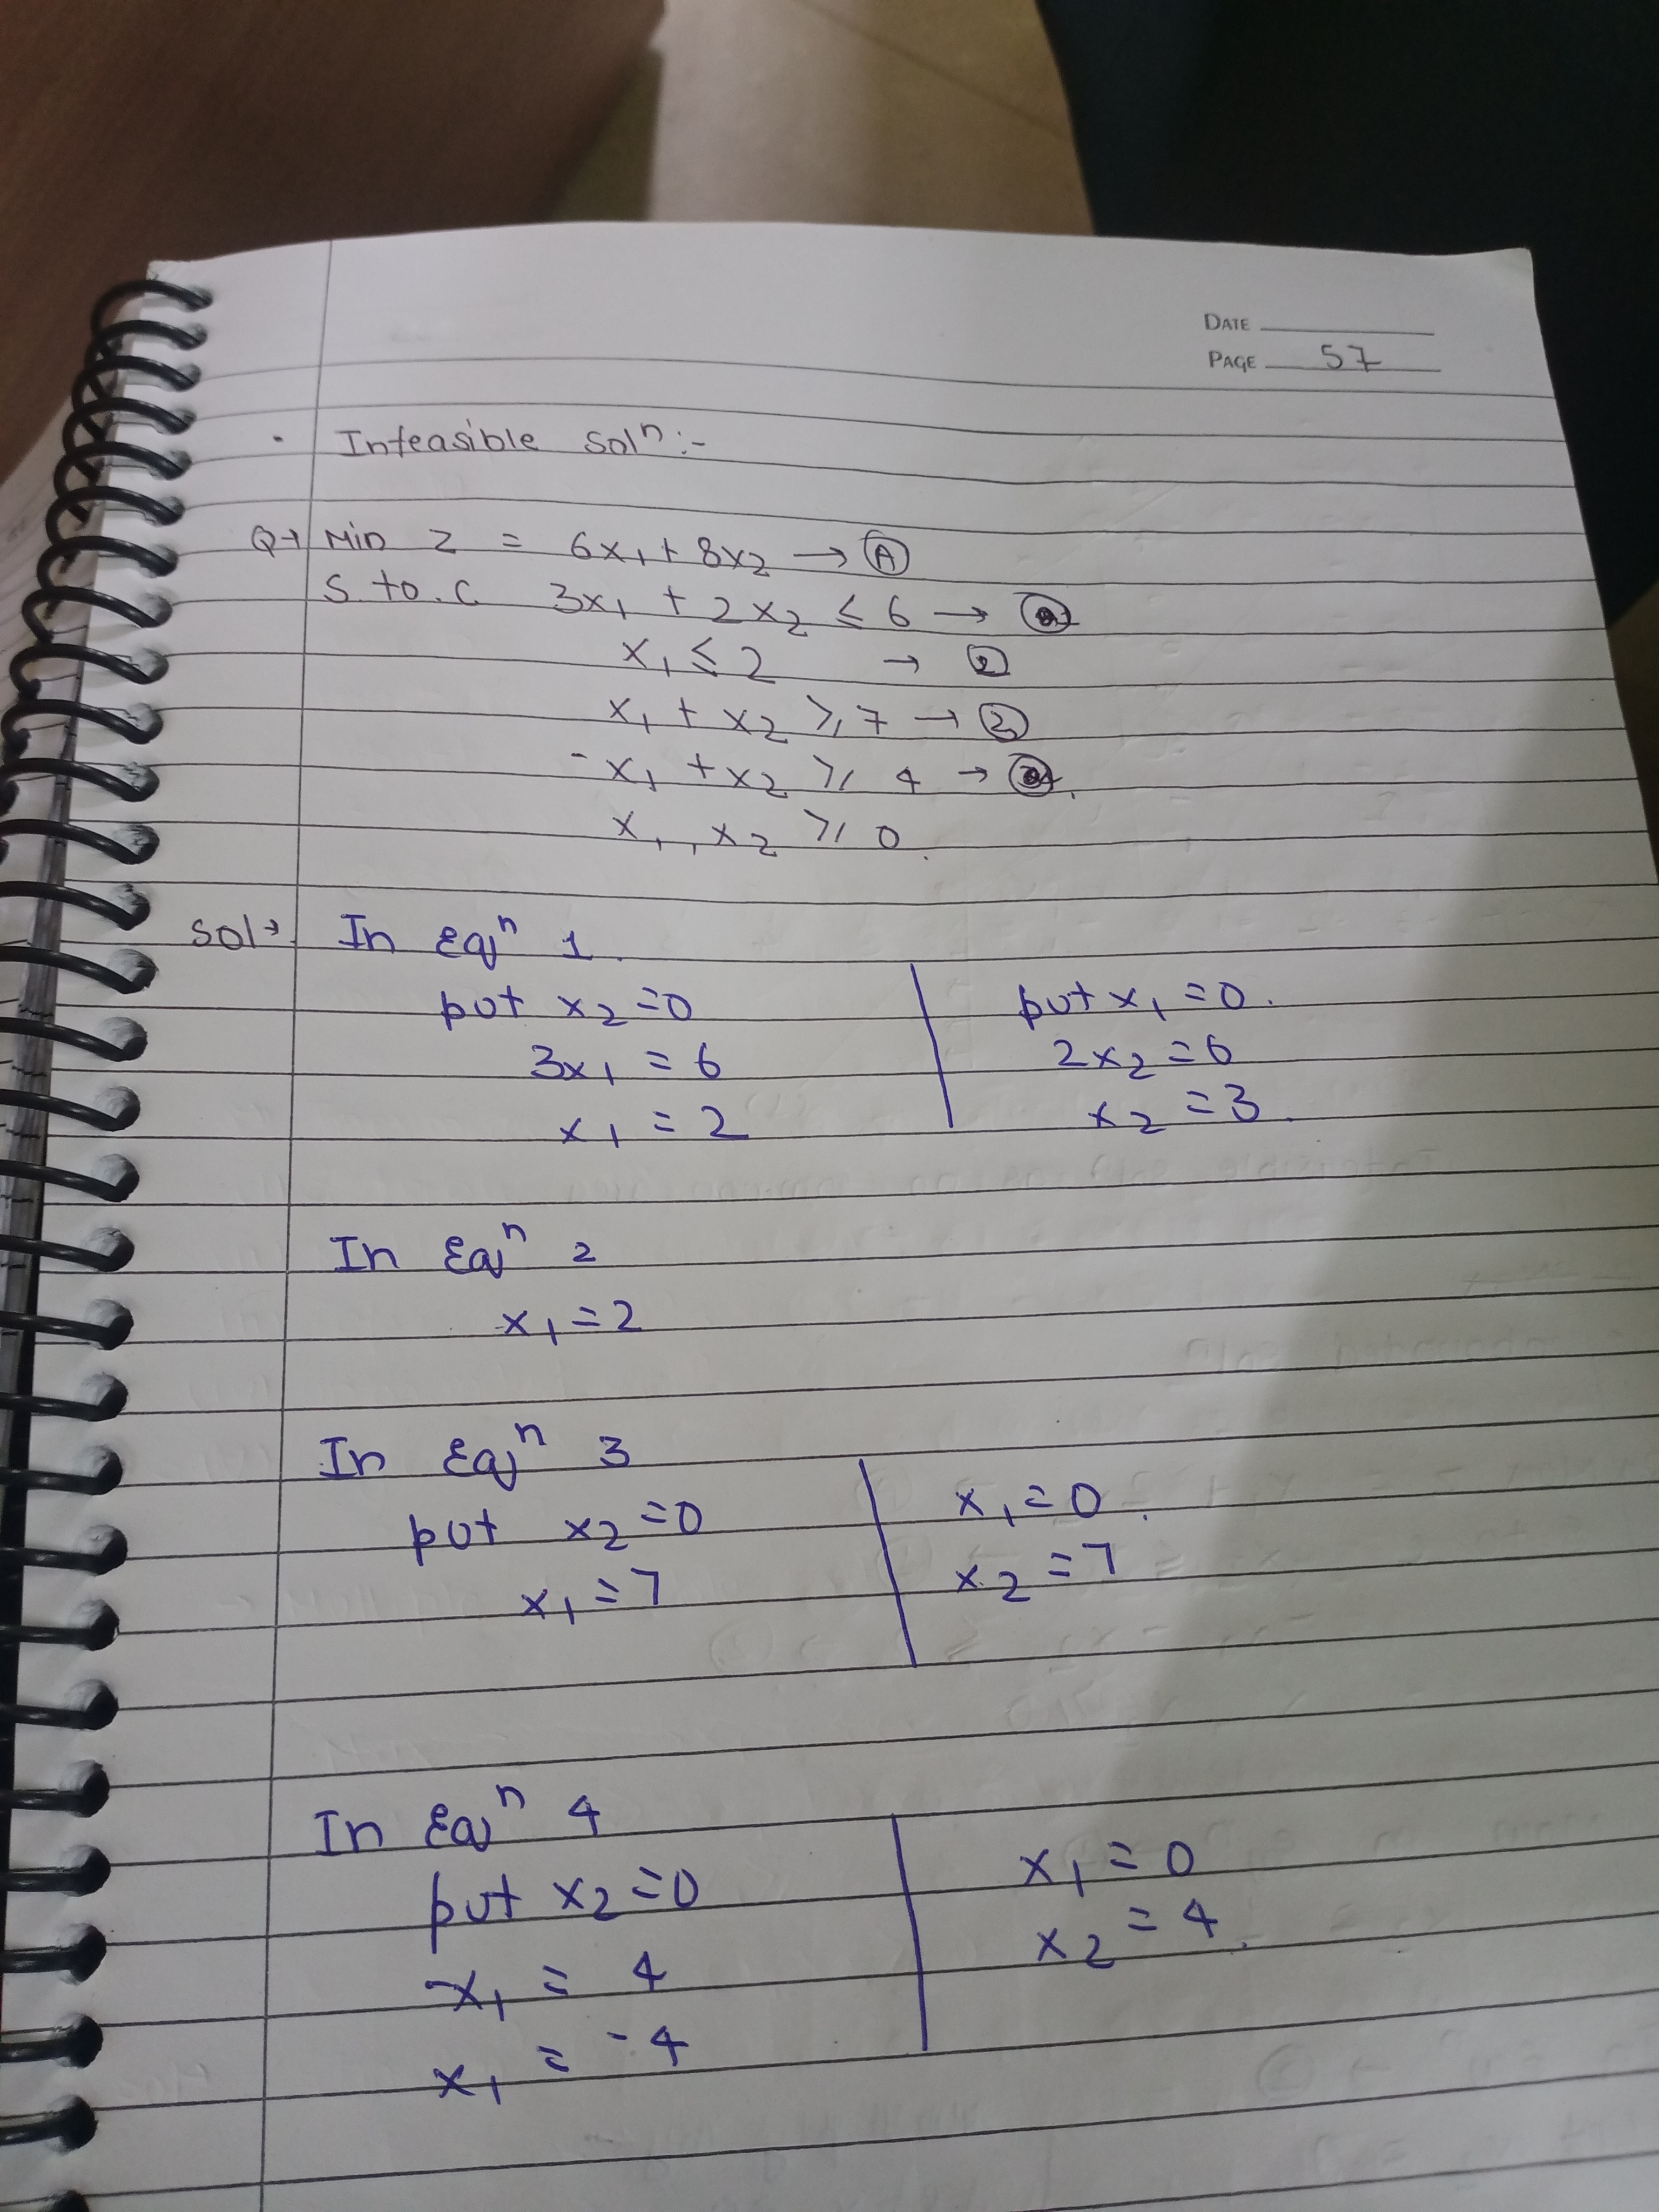 DATE
PAGE 57
• Infeasible Solⁿ :-
Q→ Min Z = 6x₁ + 8x₂ → Ⓐ
S. to. C 3x₁ + 2x₂ ≤ 6 →
x₁ ≤ 2 → ②
x₁ + x₂ ≥ 7 →
-x₁ + x₂ ≥ 4 →
x₁, x₂ ≥ 0.
Sol→ In Eqⁿ 1.
put x₂ = 0
put x₁ = 0.
3x₁ = 6
2x₂ = 6
x₁ = 2
x₂ = 3.
In Eqⁿ 2
x₁ = 2
In Eqⁿ 3
put x₂ = 0
x₁ = 0.
x₁ = 7
x₂ = 7
In Eqⁿ 4
put x₂ = 0
x₁ = 0
-x₁ = 4
x₂ = 4.
x₁ = -4